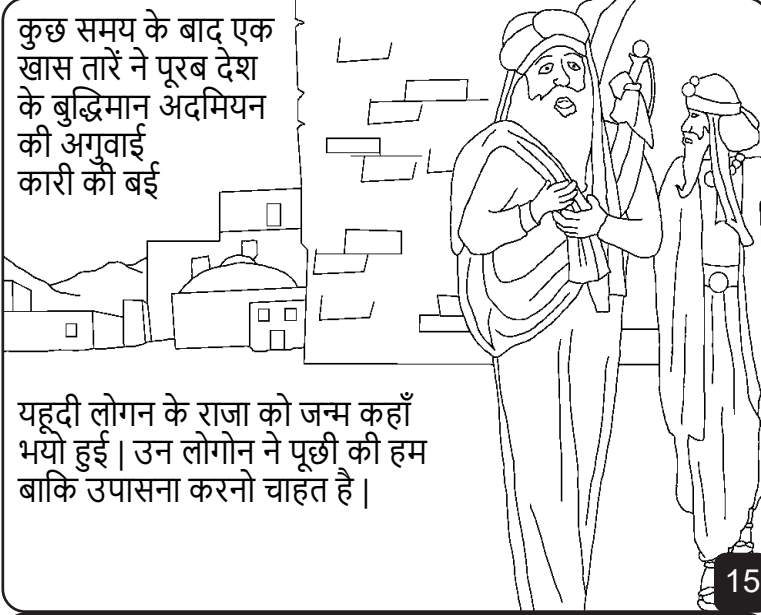 कुछ समय के बाद एक
खास तारें ने पूरब देश
के बुद्धिमान अदमियन
की अगुवाई
कारी की बई
यहूदी लोगन के राजा को जन्म कहाँ
भयो हुई | उन लोगोन ने पूछी की हम
बाकि उपासना करनो चाहत है |
15